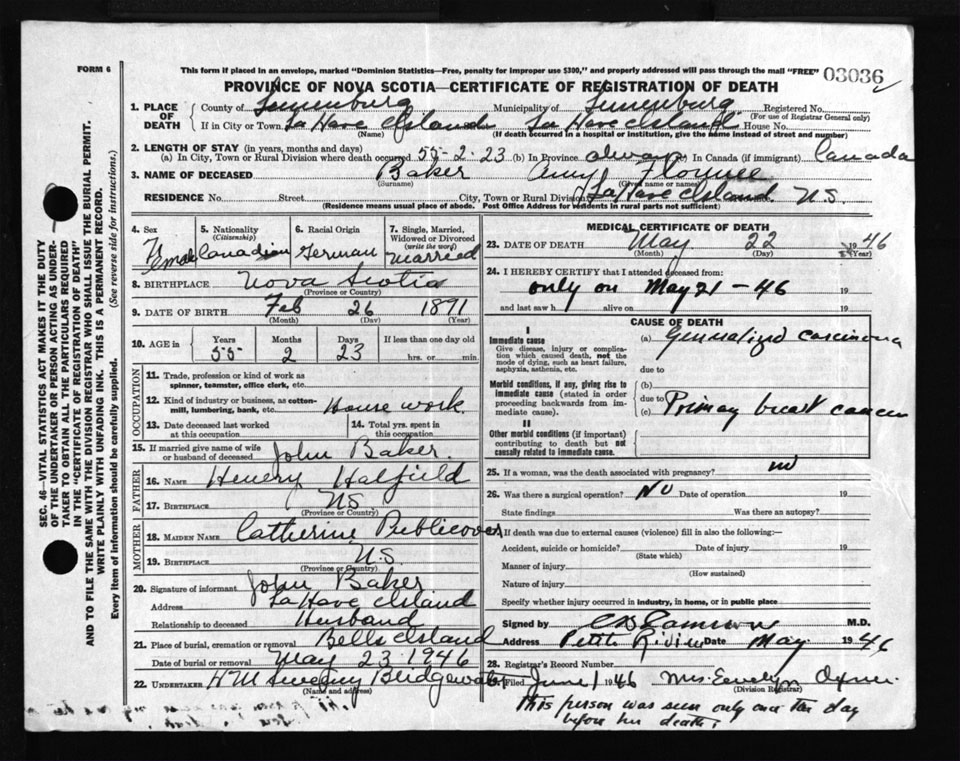 FORM 6
This form if placed in an envelope, marked "Dominion Statistics—Free, penalty for improper use $300," and properly addressed will pass through the mail "FREE"
03036
PROVINCE OF NOVA SCOTIA—CERTIFICATE OF REGISTRATION OF DEATH
1. PLACE OF DEATH County of Lunenburg Municipality of Lunenburg Registered No.
(For use of Registrar General only)
If in City or Town La Have Island La Have Island House No.
(If death occurred in a hospital or institution, give the name instead of street and number)
2. LENGTH OF STAY (in years, months and days)
(a) In City, Town or Rural Division where death occurred 55-2-23 (b) In Province always In Canada (if immigrant) Canada
3. NAME OF DECEASED Baker Amy Florence
(Surname) (Given name or names)
RESIDENCE No. Street City, Town or Rural Division La Have Island N.S.
(Residence means usual place of abode. Post Office Address for residents in rural parts not sufficient)
4. Sex Female
5. Nationality (Citizenship) Canadian
6. Racial Origin German
7. Single, Married, Widowed or Divorced (write the word) Married
8. BIRTHPLACE Nova Scotia
(Province or Country)
9. DATE OF BIRTH Feb 26 1891
(Month) (Day) (Year)
10. AGE in Years 55 Months 2 Days 23 If less than one day old hrs. or min.
OCCUPATION
11. Trade, profession or kind of work as spinner, teamster, office clerk, etc.
12. Kind of industry or business, as cotton-mill, lumbering, bank, etc. House work.
13. Date deceased last worked at this occupation
14. Total yrs. spent in this occupation
15. If married give name of wife or husband of deceased John Baker.
FATHER
16. NAME Henery Hatfield
17. BIRTHPLACE NS
(Province or Country)
MOTHER
18. MAIDEN NAME Catherine Publicover
19. BIRTHPLACE N.S
(Province or Country)
20. Signature of informant John Baker
Address La Have Island
Relationship to deceased Husband
21. Place of burial, cremation or removal Bells Island
Date of burial or removal May 23 1946
22. UNDERTAKER H M Bridgewater
(Name and address)
MEDICAL CERTIFICATE OF DEATH
23. DATE OF DEATH May 22 1946
(Month) (Day) (Year)
24. I HEREBY CERTIFY that I attended deceased from:
only on May 21 - 46 19
and last saw h alive on 19
CAUSE OF DEATH
I
Immediate cause
Give disease, injury or complication which caused death, not the mode of dying, such as heart failure, asphyxia, asthenia, etc.
(a) Generalized carcinoma
due to
Morbid conditions, if any, giving rise to immediate cause (stated in order proceeding backwards from immediate cause).
(b)
due to
(c) Primary breast cancer
II
Other morbid conditions (if important) contributing to death but not causally related to immediate cause.
25. If a woman, was the death associated with pregnancy? no
26. Was there a surgical operation? No Date of operation 19
State findings Was there an autopsy?
If death was due to external causes (violence) fill in also the following:—
Accident, suicide or homicide? Date of injury 19
(State which)
Manner of injury
(How sustained)
Nature of injury
Specify whether injury occurred in industry, in home, or in public place
Signed by M.D.
Address Petite Riviere Date May 1946
28. Registrar's Record Number
Filed June 1 1946 Mrs. Evelyn Oxner.
(Division Registrar)
This person was seen only once the day
before her death.
SEC. 46—VITAL STATISTICS ACT MAKES IT THE DUTY
OF THE UNDERTAKER OR PERSON ACTING AS UNDER-
TAKER TO OBTAIN ALL THE PARTICULARS REQUIRED
IN THE "CERTIFICATE OF REGISTRATION OF DEATH"
AND TO FILE THE SAME WITH THE DIVISION REGISTRAR WHO SHALL ISSUE THE BURIAL PERMIT.
WRITE PLAINLY WITH UNFADING INK. THIS IS A PERMANENT RECORD.
Every item of information should be carefully supplied. (See reverse side for instructions.)